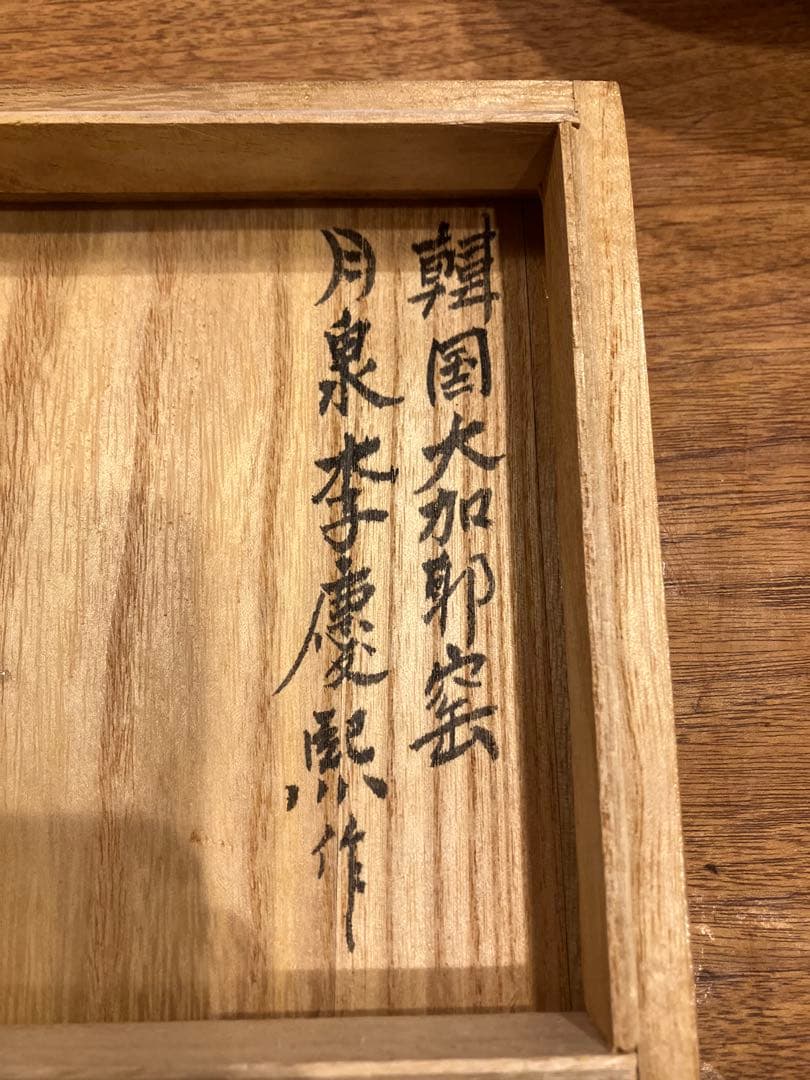 韓国大加耶窑
月泉李慶熙作